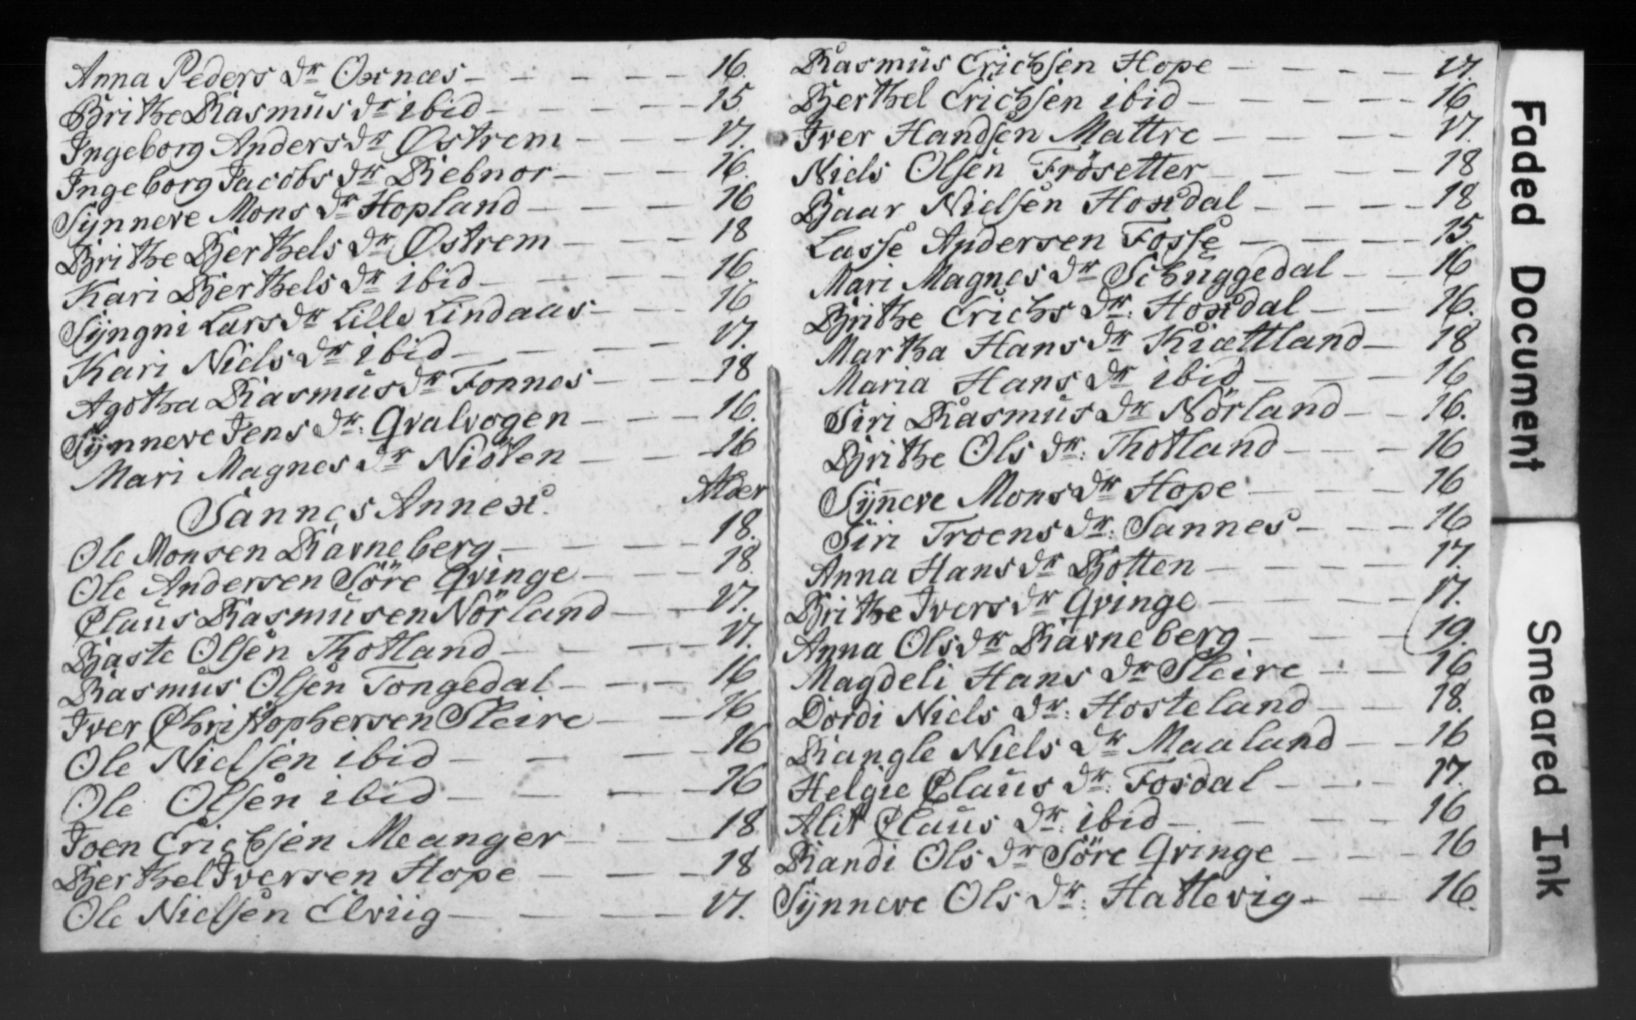 Anna Peders dr Oxnæs - - - - 16.
Brithe Rasmus dr ibid - - - - 15
Ingeborg Anders dr Østrem - - - 17.
Ingeborg Jacobs dr Rebnor - - - 16.
Sÿnneve Mons dr Hopland - - - 16
Brithe Berthels dr Østrem - - - 18
Kari Berthels dr ibid - - - - 16
Sÿngni Lars dr Lille Lindaas - - - 16
Kari Niels dr ibid - - - - 17.
Agotha Rasmus dr Fonnes - - - 18
Sÿnneve Jens dr: Qvalvogen - - - 16.
Mari Magnes dr Niölen - - - 16
Sannes Annex. Alder
Ole Monsen Ravneberg - - - - 18.
Ole Andersen Söre Qvinge - - - 18
Claus Rasmusen Nörland - - - 17.
Baste Olsen Thotland - - - - 17.
Rasmus Olsen Tongedal - - - 16
Iver Christophersen Sleire - - - 16
Ole Nielsen ibid - - - - 16
Ole Olsen ibid - - - - 16
Joen Erichsen Meanger - - - 18
Berthel Iversen Hope - - - 18
Ole Nielsen Elviig - - - - 17.
Rasmus Erichsen Hope - - - - 17.
Berthel Erichsen ibid - - - - 16
Iver Handsen Mattre - - - - 17.
Niels Olsen Frösetter - - - - 18
Baar Nielsen Hoxdal - - - - 18
Lasse Andersen Fosse - - - - 15
Mari Magnes dr Schuggedal - - 16
Brithe Erichs dr: Hoxdal - - - 16.
Martha Hans dr Kiættland - 18
Maria Hans dr ibid - - - 16
Siri Rasmus dr Nörland - - 16.
Brithe Ols dr: Thotland - - - 16
Sÿn̄eve Mons dr Hope - - - - 16
Siri Troens dr: Sannes - - - 16
Anna Hans dr Botten - - - - 17.
Brithe Ivers dr Qvinge - - - - 17.
Anna Ols dr Ravneberg - - - - 19.
Magdeli Hans dr Sleire - - - 16
Dordi Niels dr: Hosteland - - - 18.
Rangle Niels dr Maaland - - 16
Helgie Claus dr: Fosdal - - - 17.
Alit Claus dr: ibid - - - - 16
Randi Ols dr Söre Qvinge - - - 16
Sÿnneve Ols dr: Hatlevig - - - 16.
Faded Document
Smeared Ink